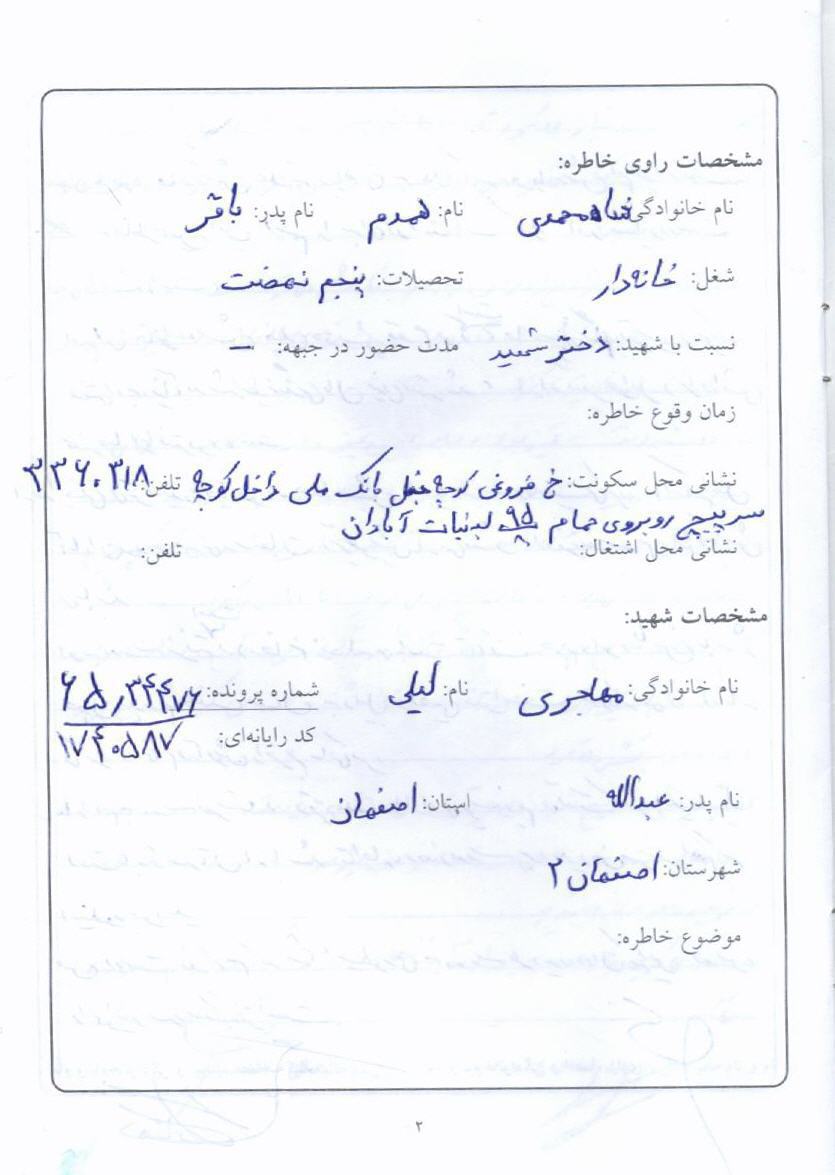 مشخصات راوی خاطره:
نام خانوادگی: شاه محمدی نام: همدم نام پدر: باقر
شغل: خانه‌دار تحصیلات: پنجم نهضت
نسبت با شهید: دختر شهید مدت حضور در جبهه: –
زمان وقوع خاطره:
نشانی محل سکونت: خ فروغی کوچه جنب بانک ملی داخل کوچه تلفن: ۳۳۶۰۳۱۸
سرپیچ روبروی حمام لبنیات آبادان
نشانی محل اشتغال: تلفن:
مشخصات شهید:
نام خانوادگی: مهاجری نام: لیلی شماره پرونده: ۶۵٫۳۴۴۷۶
کد رایانه‌ای: ۱۷۴۰۵۸۷
نام پدر: عبدالله استان: اصفهان
شهرستان: اصفهان ۲
موضوع خاطره:
۲